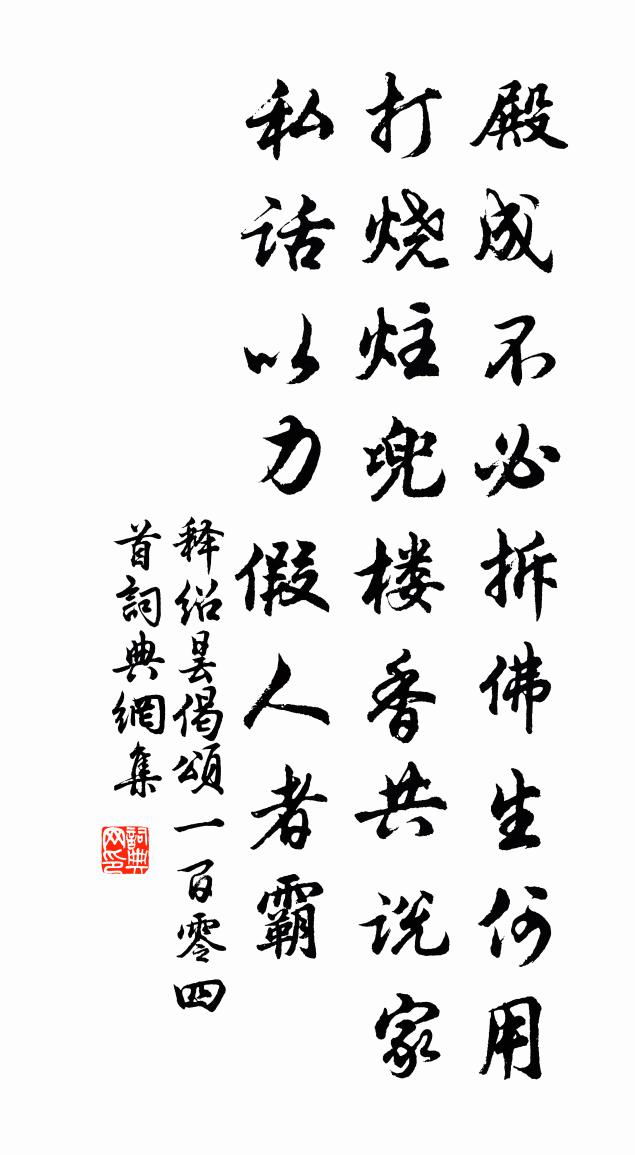 殿成不必拆佛生何用
打烧炷兜楼香共说家
私话以力假人者霸
释绍昙偈頌一百零四
首詞典網集
詞典网印